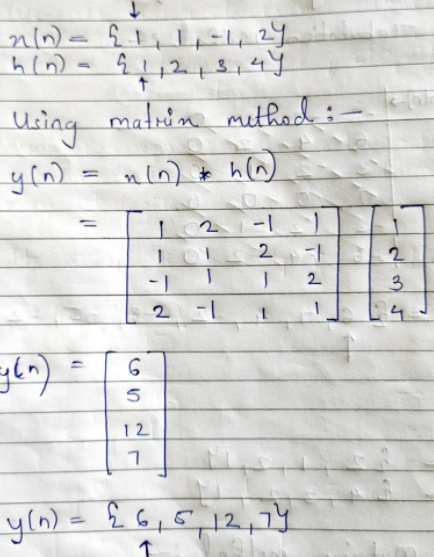 ↓
x(n) = {1, 1, -1, 2}
h(n) = {1, 2, 3, 4}
↑
Using matrix method :-
y(n) = x(n) * h(n)
= [1 2 -1 1] [1]
[1 1 2 -1] [2]
[-1 1 1 2] [3]
[2 -1 1 1] [4]
y(n) = [6]
[5]
[12]
[7]
y(n) = {6, 5, 12, 7}
↑